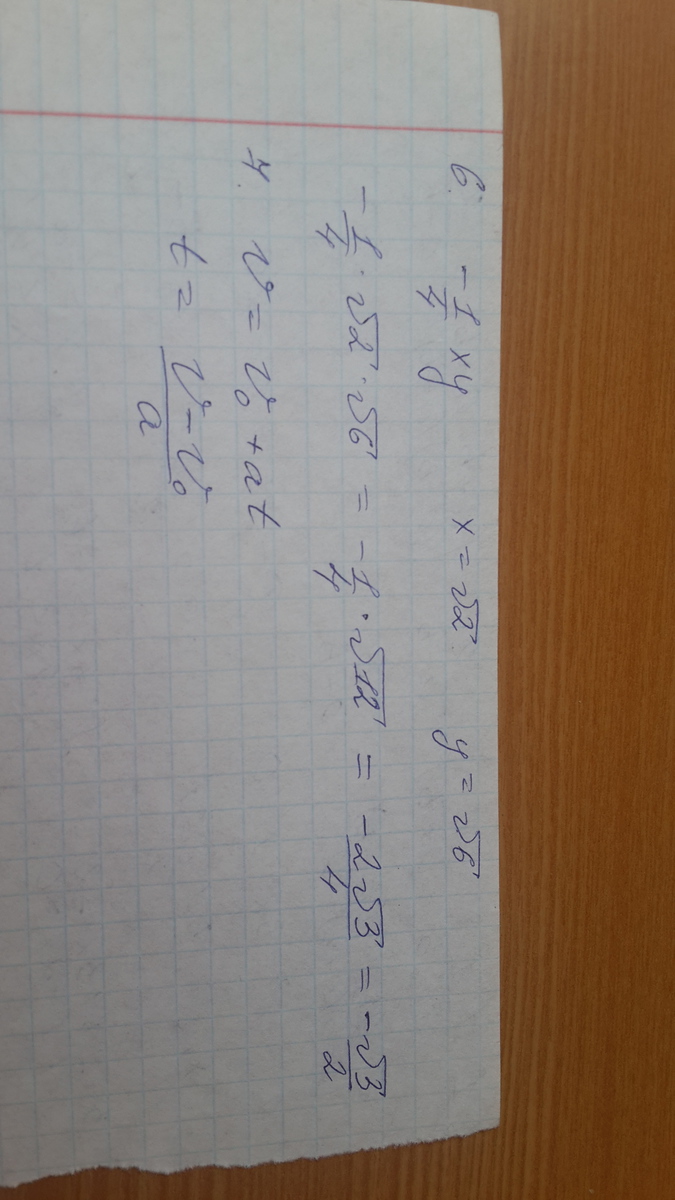 6. -1/4 xy x = √2 y = √6
-1/4 · √2 · √6 = -1/4 · √12 = -2√3/4 = -√3/2
7. v = v₀ + at
t = v - v₀/a